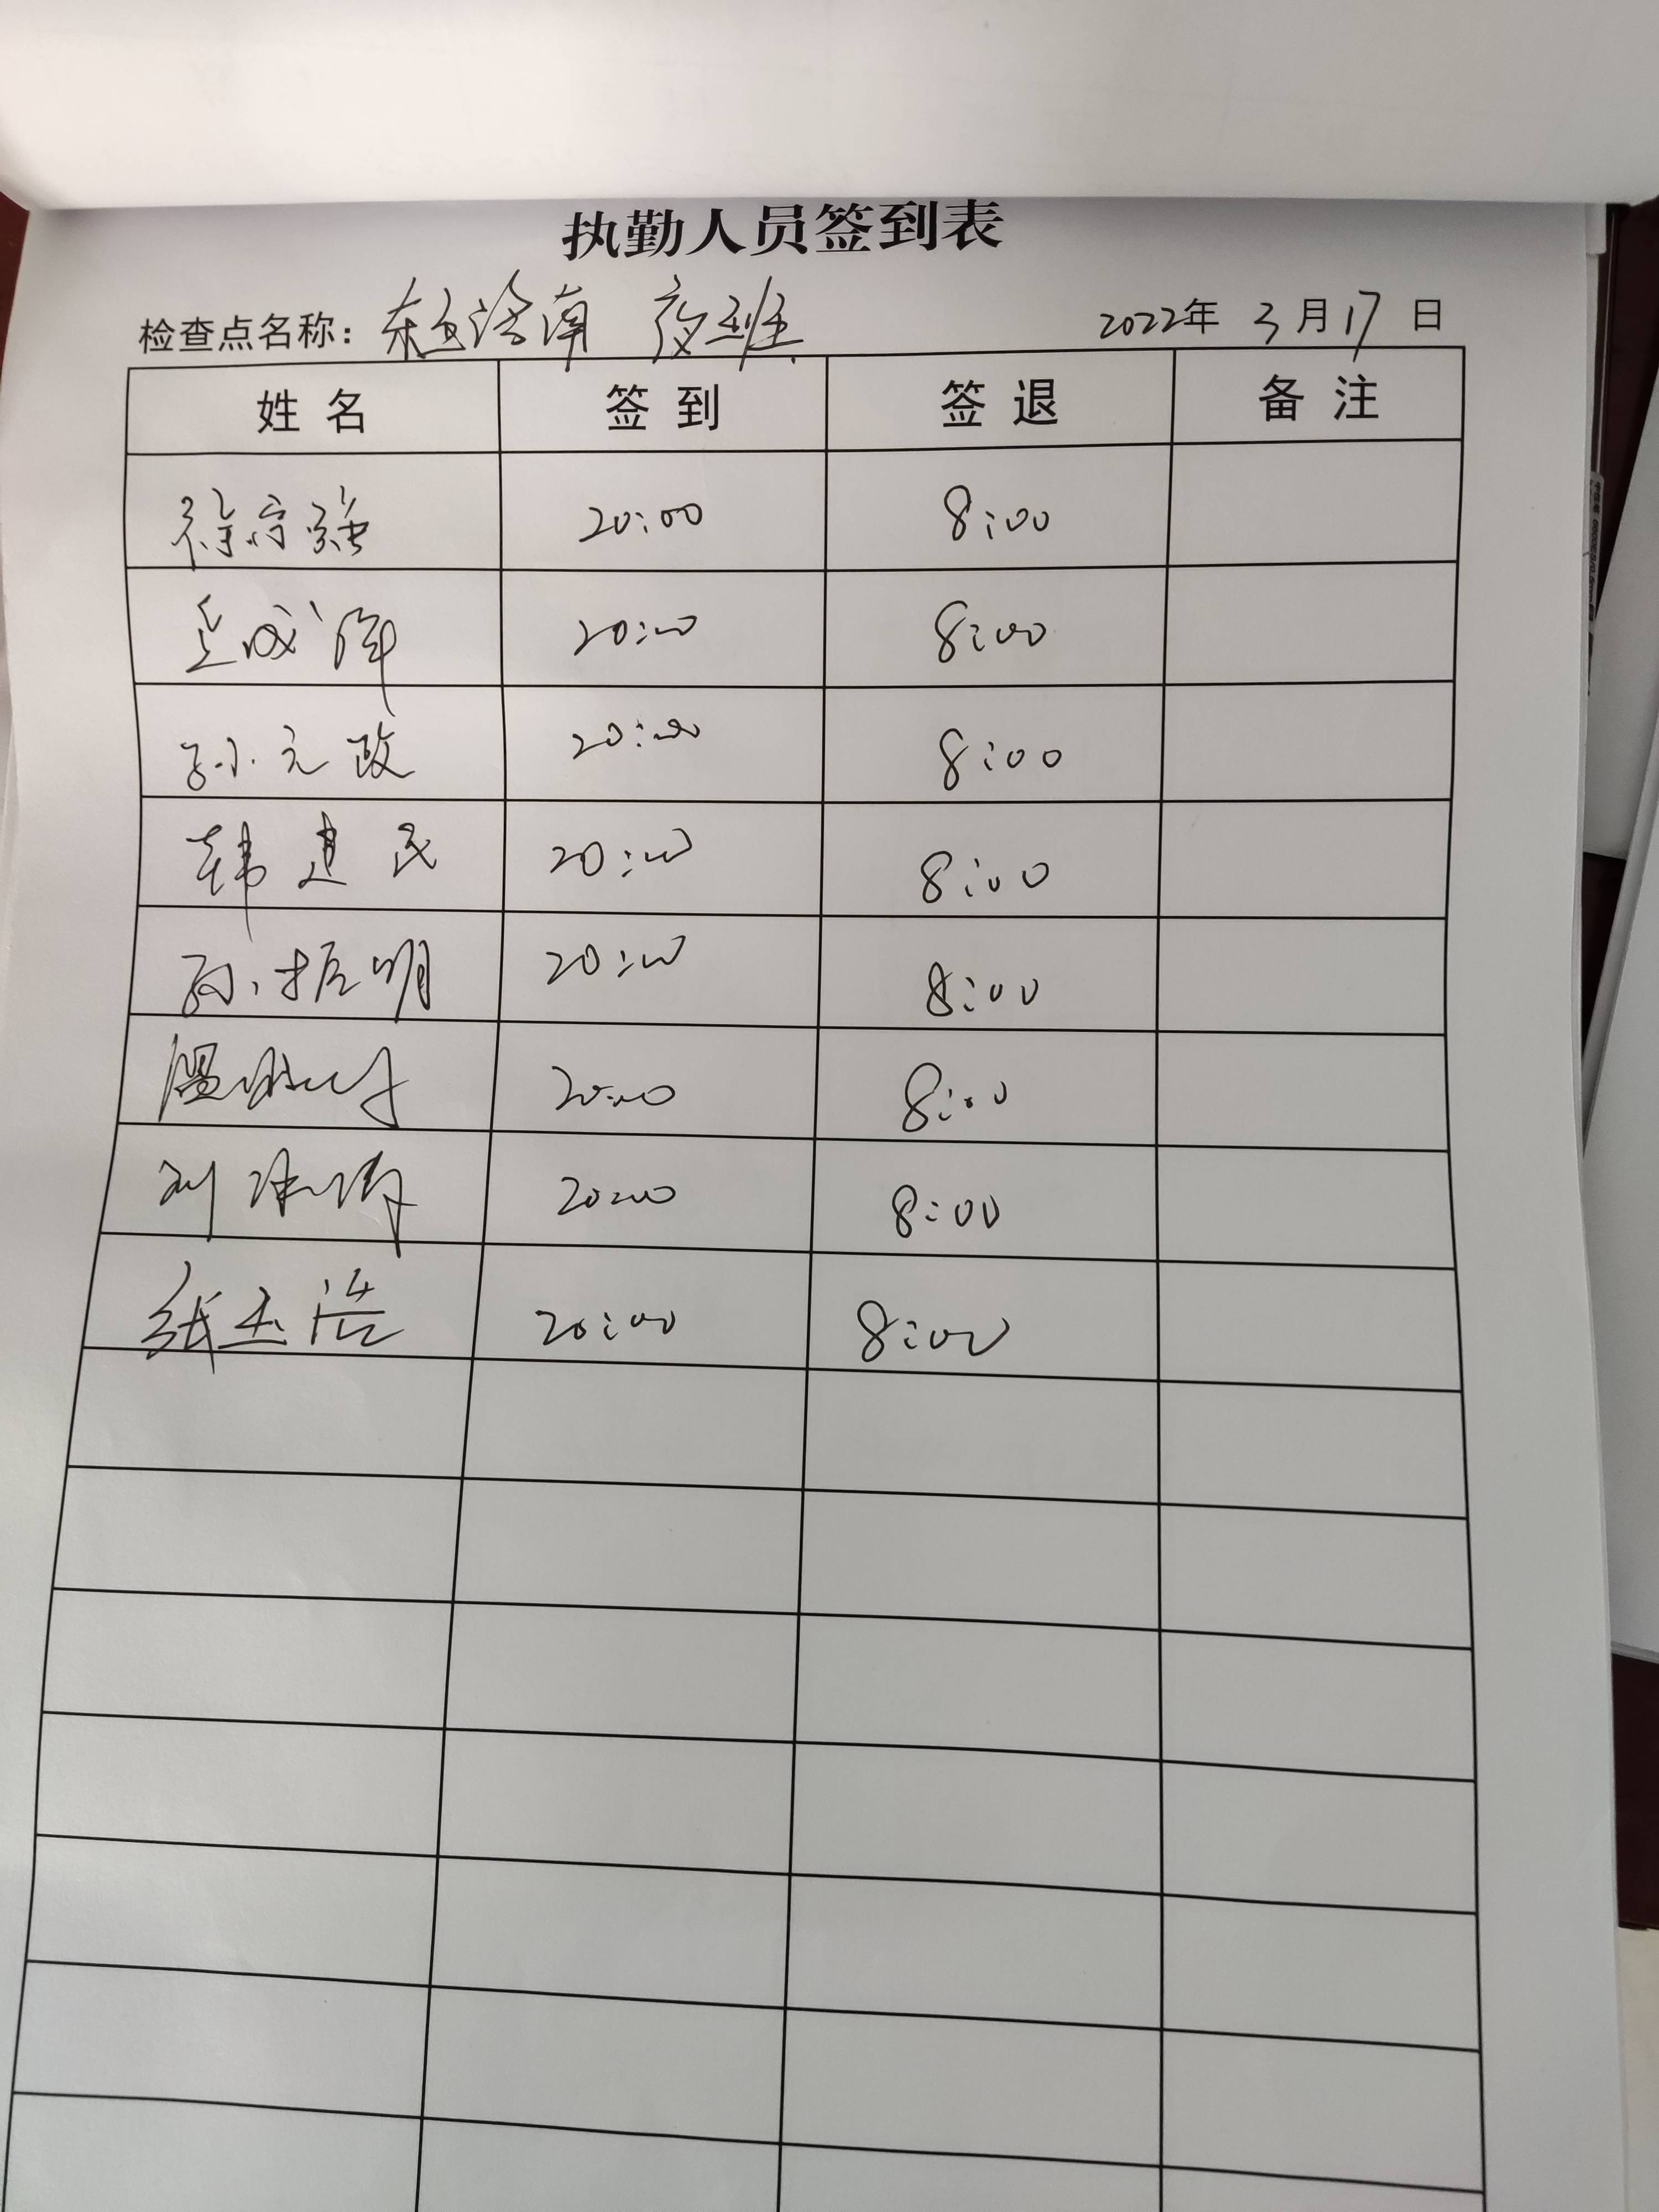 执勤人员签到表
检查点名称： 夜班 2022年 3月17日
姓名 签到 签退 备注
徐守强 20:00 8:00
成 20:00 8:00
孙元政 20:00 8:00
韩建民 20:00 8:00
孙振明 20:00 8:00
温 20:00 8:00
刘 20:00 8:00
张玉浩 20:00 8:00